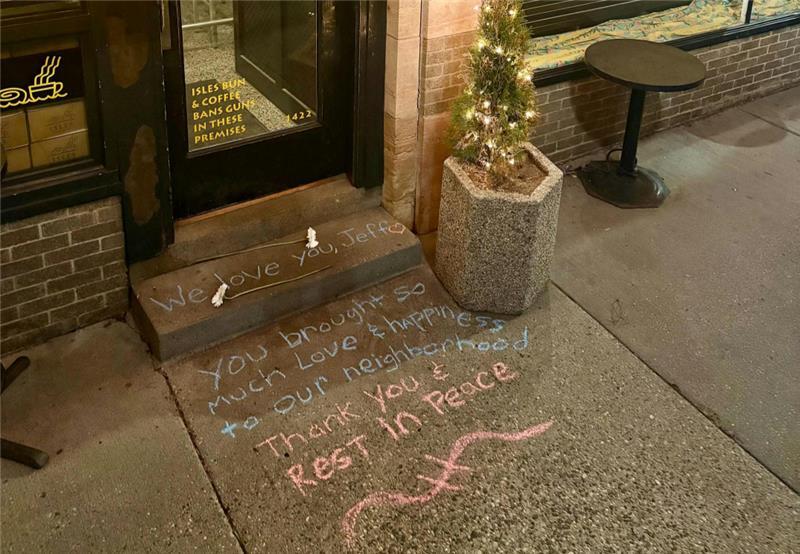 ISLES BUN
& COFFEE
BANS GUNS
IN THESE
PREMISES
1422
We love you, Jeff♡
You brought so
much Love & happiness
to our neighborhood
Thank You &
Rest in Peace